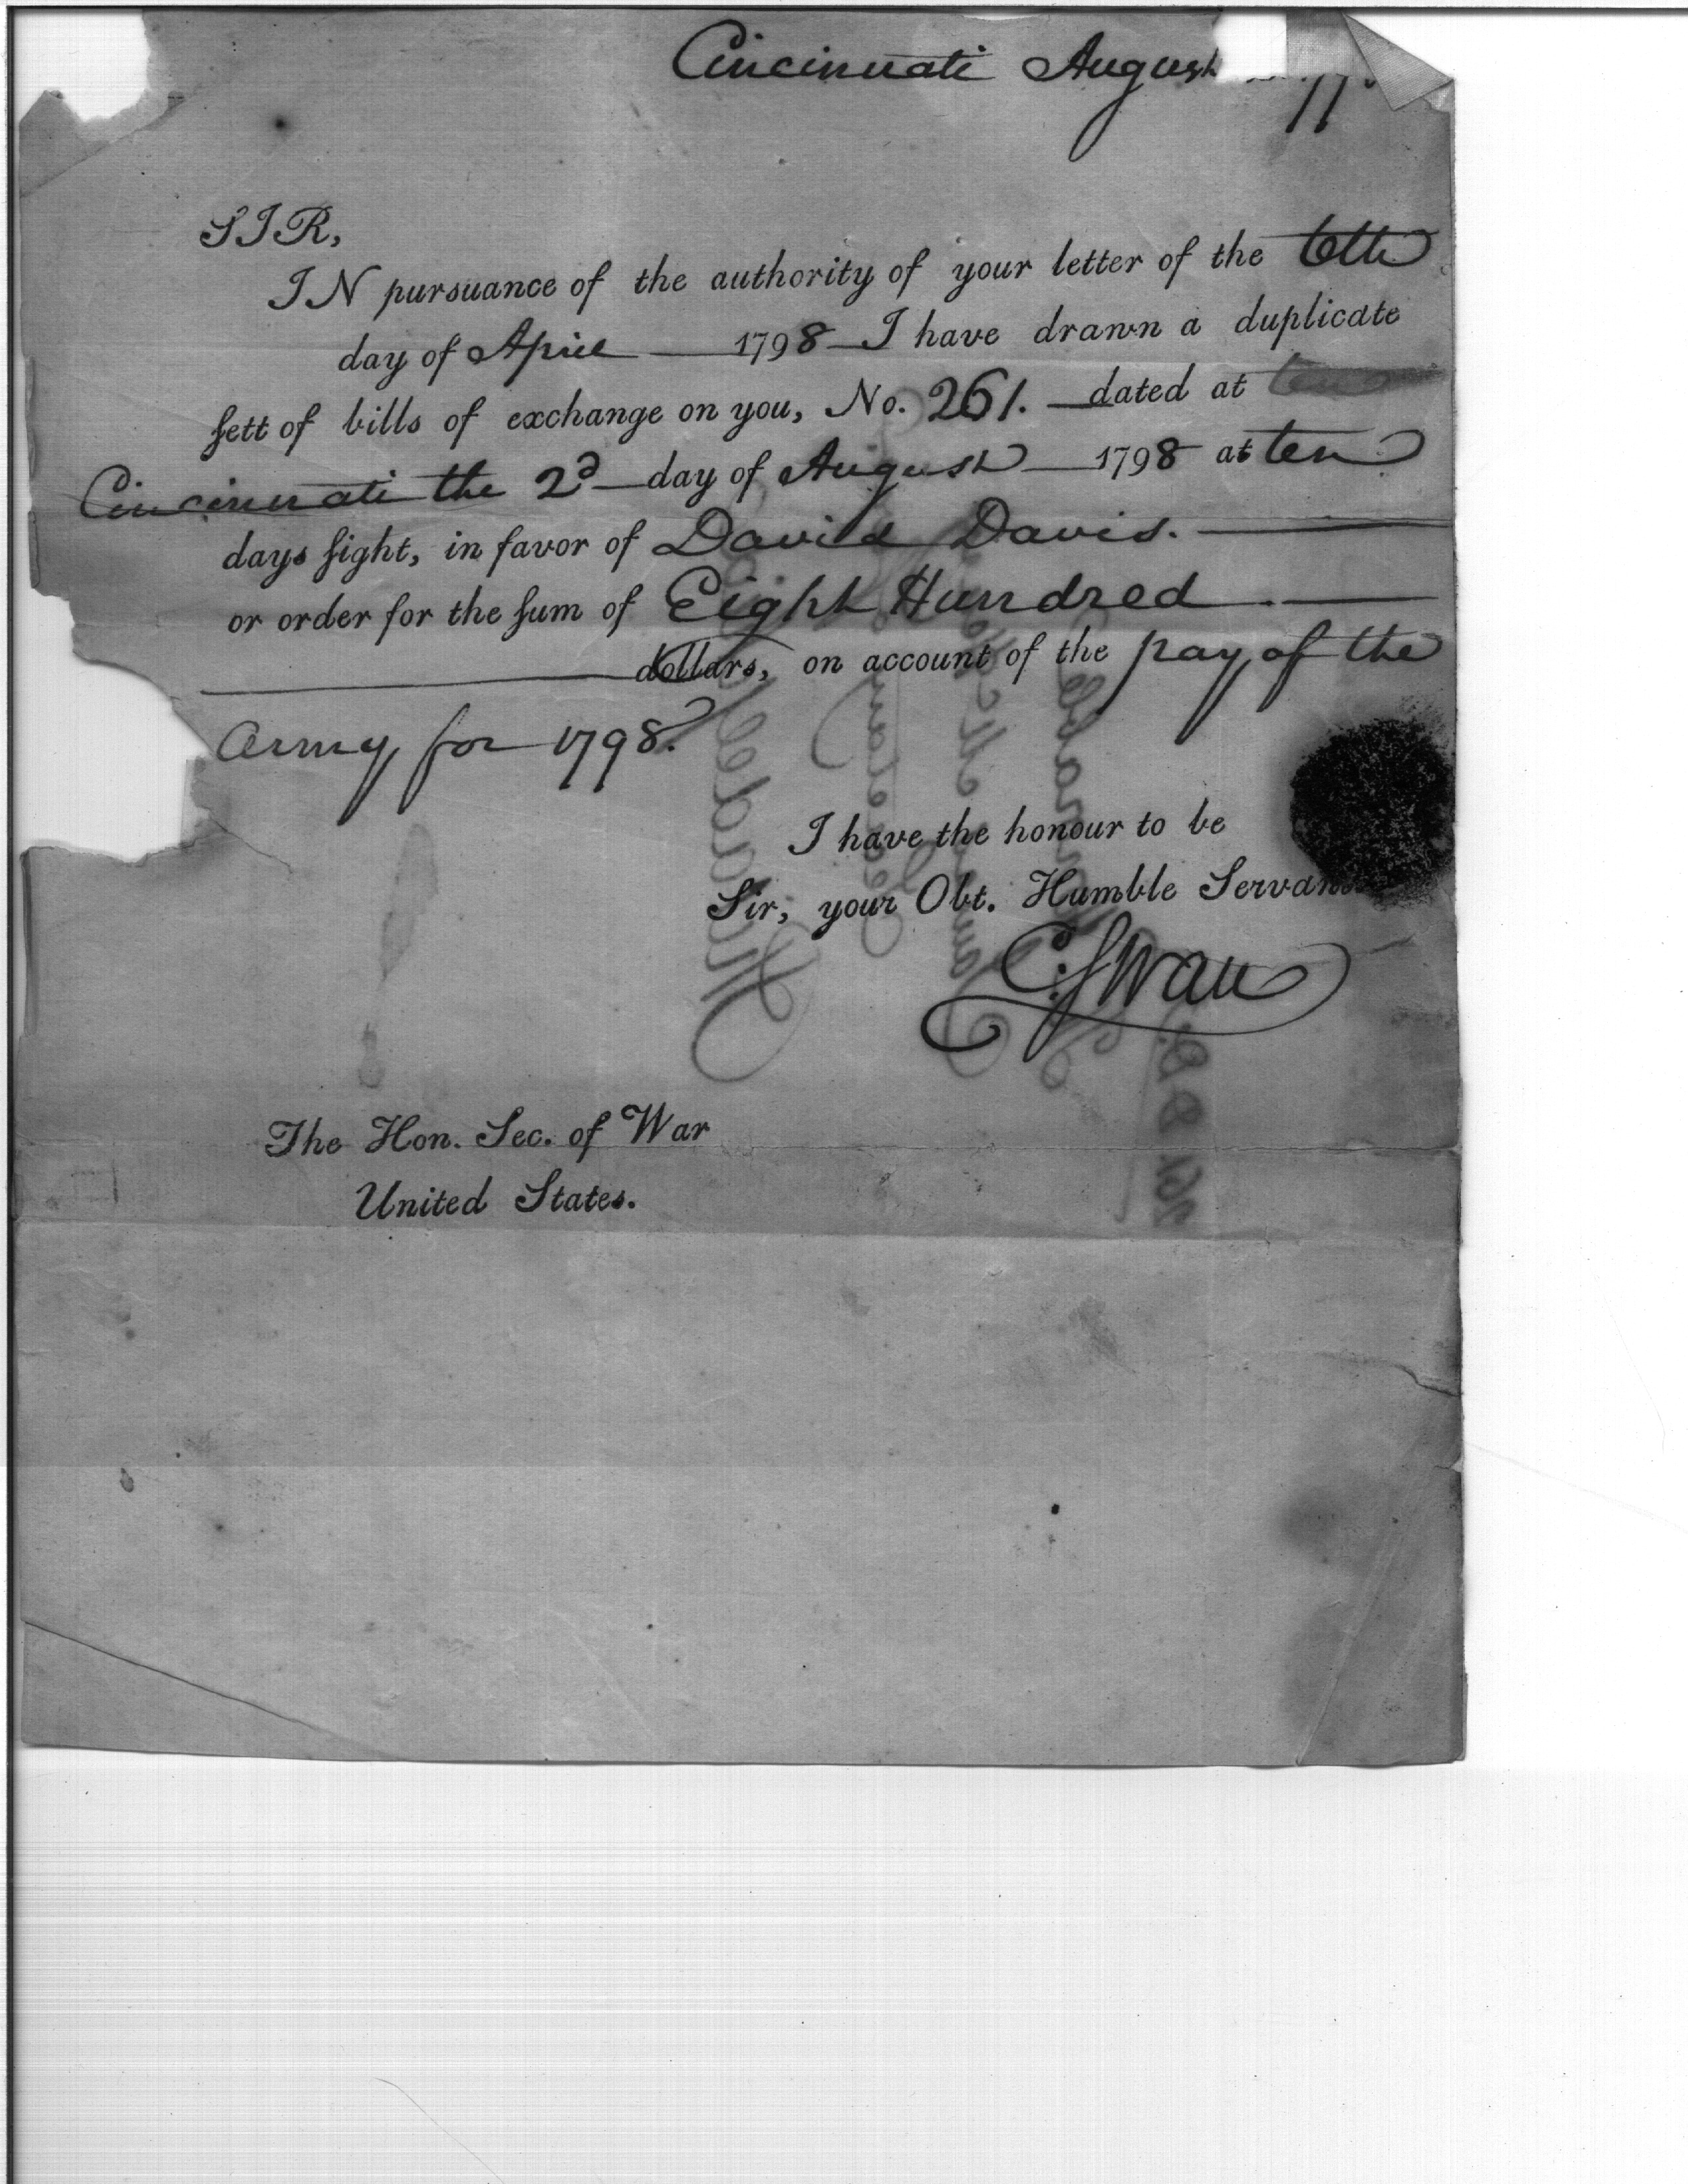 Cincinnati August
SIR,
IN pursuance of the authority of your letter of the 6th
day of April 1798 I have drawn a duplicate
sett of bills of exchange on you, No. 261. dated at ten
Cincinnati the 2d day of August 1798 at ten
days sight, in favor of David Davis.
or order for the sum of Eight Hundred
dollars, on account of the pay of the
Army for 1798.
I have the honour to be
Sir, your Obt. Humble Servant
C: Swan
The Hon. Sec. of War
United States.